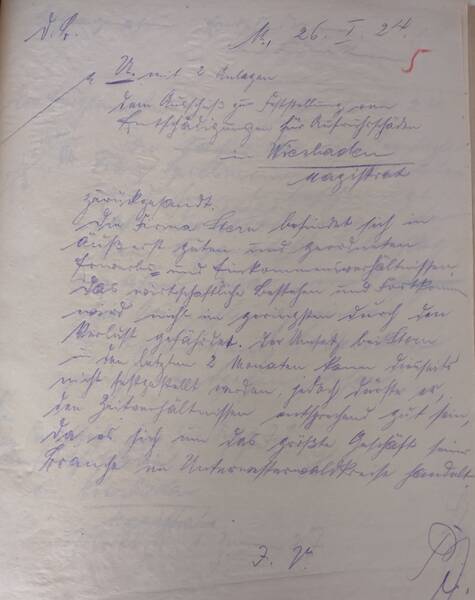 d. Br. M., 26. I 24.
5
U. mit 2 Anlagen
dem Ausschuß zur Feststellung von
Entschädigungen für Aufruhrschäden
in Wiesbaden
Magistrat
zurückgesandt.
Die Firma Stern befindet sich in
äußerst guten und geordneten
Erwerbs- und Einkommensverhältnissen.
Das wirtschaftliche Bestehen und Fortkommen
wird nicht im geringsten durch den
Verlust gefährdet. Der Umsatz bei Stern
in den letzten 2 Monaten kann diesseits
nicht festgestellt werden, jedoch dürfte er,
den Zeitverhältnissen entsprechend gut sein,
da es sich um das größte Geschäft seiner
Branche im Unterwesterwaldkreise handelt.
J. V.